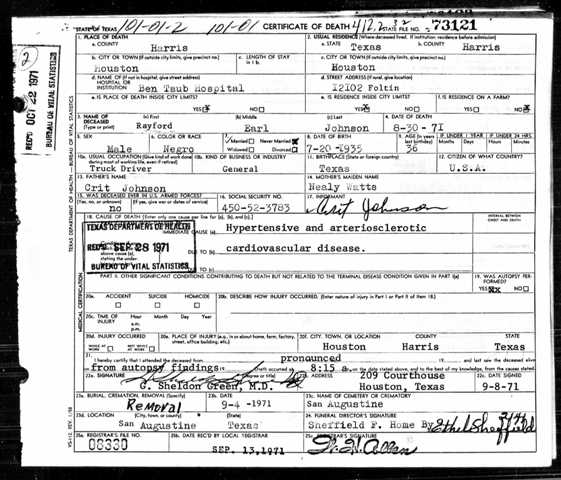 STATE OF TEXAS 101-01-2 101-01 CERTIFICATE OF DEATH STATE FILE NO. 73121
2
REC'D OCT 22 1971
BUREAU OF VITAL STATISTICS
TEXAS DEPARTMENT OF HEALTH — BUREAU OF VITAL STATISTICS
1. PLACE OF DEATH 2. USUAL RESIDENCE (Where deceased lived. If institution: residence before admission)
a. COUNTY a. STATE b. COUNTY
Harris Texas Harris
b. CITY OR TOWN (If outside city limits, give precinct no.) c. LENGTH OF STAY in 1 b. c. CITY OR TOWN (If outside city limits, give precinct no.)
Houston Houston
d. NAME OF (If not in hospital, give street address) HOSPITAL OR INSTITUTION d. STREET ADDRESS (If rural, give location)
Ben Taub Hospital 12102 Foltin
e. IS PLACE OF DEATH INSIDE CITY LIMITS? e. IS RESIDENCE INSIDE CITY LIMITS? f. IS RESIDENCE ON A FARM?
YES NO YES NO YES NO
3. NAME OF DECEASED (Type or print) 4. DATE OF DEATH
Rayford Earl Johnson 8-30-71
5. SEX 6. COLOR OR RACE 7. Married Never Married 8. DATE OF BIRTH 9. AGE (In years last birthday) IF UNDER 1 YEAR IF UNDER 24 HRS.
Widowed Divorced Months Days Hours Min.
Male Negro 7-20-1935 36
10a. USUAL OCCUPATION (Give kind of work done during most of working life, even if retired) 10b. KIND OF BUSINESS OR INDUSTRY 11. BIRTHPLACE (State or foreign country) 12. CITIZEN OF WHAT COUNTRY?
Truck Driver General Texas U.S.A.
13. FATHER'S NAME 14. MOTHER'S MAIDEN NAME
Crit Johnson Nealy Watts
15. WAS DECEASED EVER IN U.S. ARMED FORCES? 16. SOCIAL SECURITY NO. 17. INFORMANT
(Yes, no, or unknown) (If yes, give war or dates of service)
no 450-52-3783 Crit Johnson
18. CAUSE OF DEATH [Enter only one cause per line for (a), (b), and (c).] INTERVAL BETWEEN ONSET AND DEATH
TEXAS DEPARTMENT OF HEALTH
IMMEDIATE CAUSE (a) Hypertensive and arteriosclerotic
REC'D SEP 28 1971
above cause (a), stating the under
DUE TO (b) cardiovascular disease.
BUREAU OF VITAL STATISTICS
DUE TO (c)
PART II. OTHER SIGNIFICANT CONDITIONS CONTRIBUTING TO DEATH BUT NOT RELATED TO THE TERMINAL DISEASE CONDITION GIVEN IN PART I(a) 19. WAS AUTOPSY PERFORMED?
YES NO
MEDICAL CERTIFICATION
20a. ACCIDENT SUICIDE HOMICIDE 20b. DESCRIBE HOW INJURY OCCURRED. (Enter nature of injury in Part I or Part II of item 18.)
20c. TIME OF INJURY Hour Month Day Year
a.m.
p.m.
20d. INJURY OCCURRED 20e. PLACE OF INJURY (e.g., in or about home, farm, factory, street, office building, etc.) 20f. CITY, TOWN, OR LOCATION COUNTY STATE
WHILE AT WORK NOT WHILE AT WORK Houston Harris Texas
21. I hereby certify that I attended the deceased from pronounced 19 and last saw the deceased alive
from autopsy findings Death occurred at 8:15 a. on the date stated above, and to the best of my knowledge, from the causes stated.
22a. SIGNATURE (Degree or title) 22b. ADDRESS 209 Courthouse 22c. DATE SIGNED
G. Sheldon Green, M.D. Houston, Texas 9-8-71
23a. BURIAL, CREMATION, REMOVAL (Specify) 23b. DATE 23c. NAME OF CEMETERY OR CREMATORY
Removal 9-4-1971 San Augustine
23d. LOCATION (City, town, or county) (State) 24. FUNERAL DIRECTOR'S SIGNATURE
San Augustine Texas Sheffield F. Home By Ethel Sheffield
25a. REGISTRAR'S FILE NO. 25b. DATE REC'D BY LOCAL REGISTRAR 25c. REGISTRAR'S SIGNATURE
06330 SEP. 13, 1971